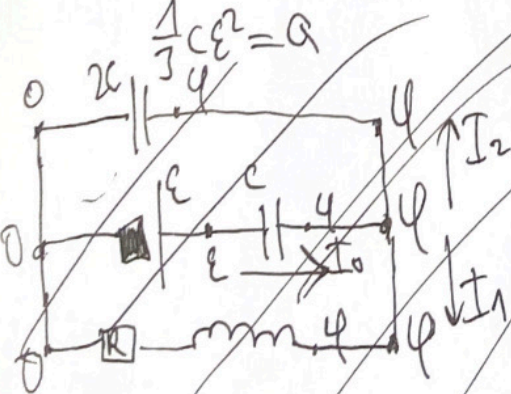 1/3 Cε² = Q
0 2C φ φ
I₂
0 ε C φ φ
ε I₀
I₁
0 R φ φ